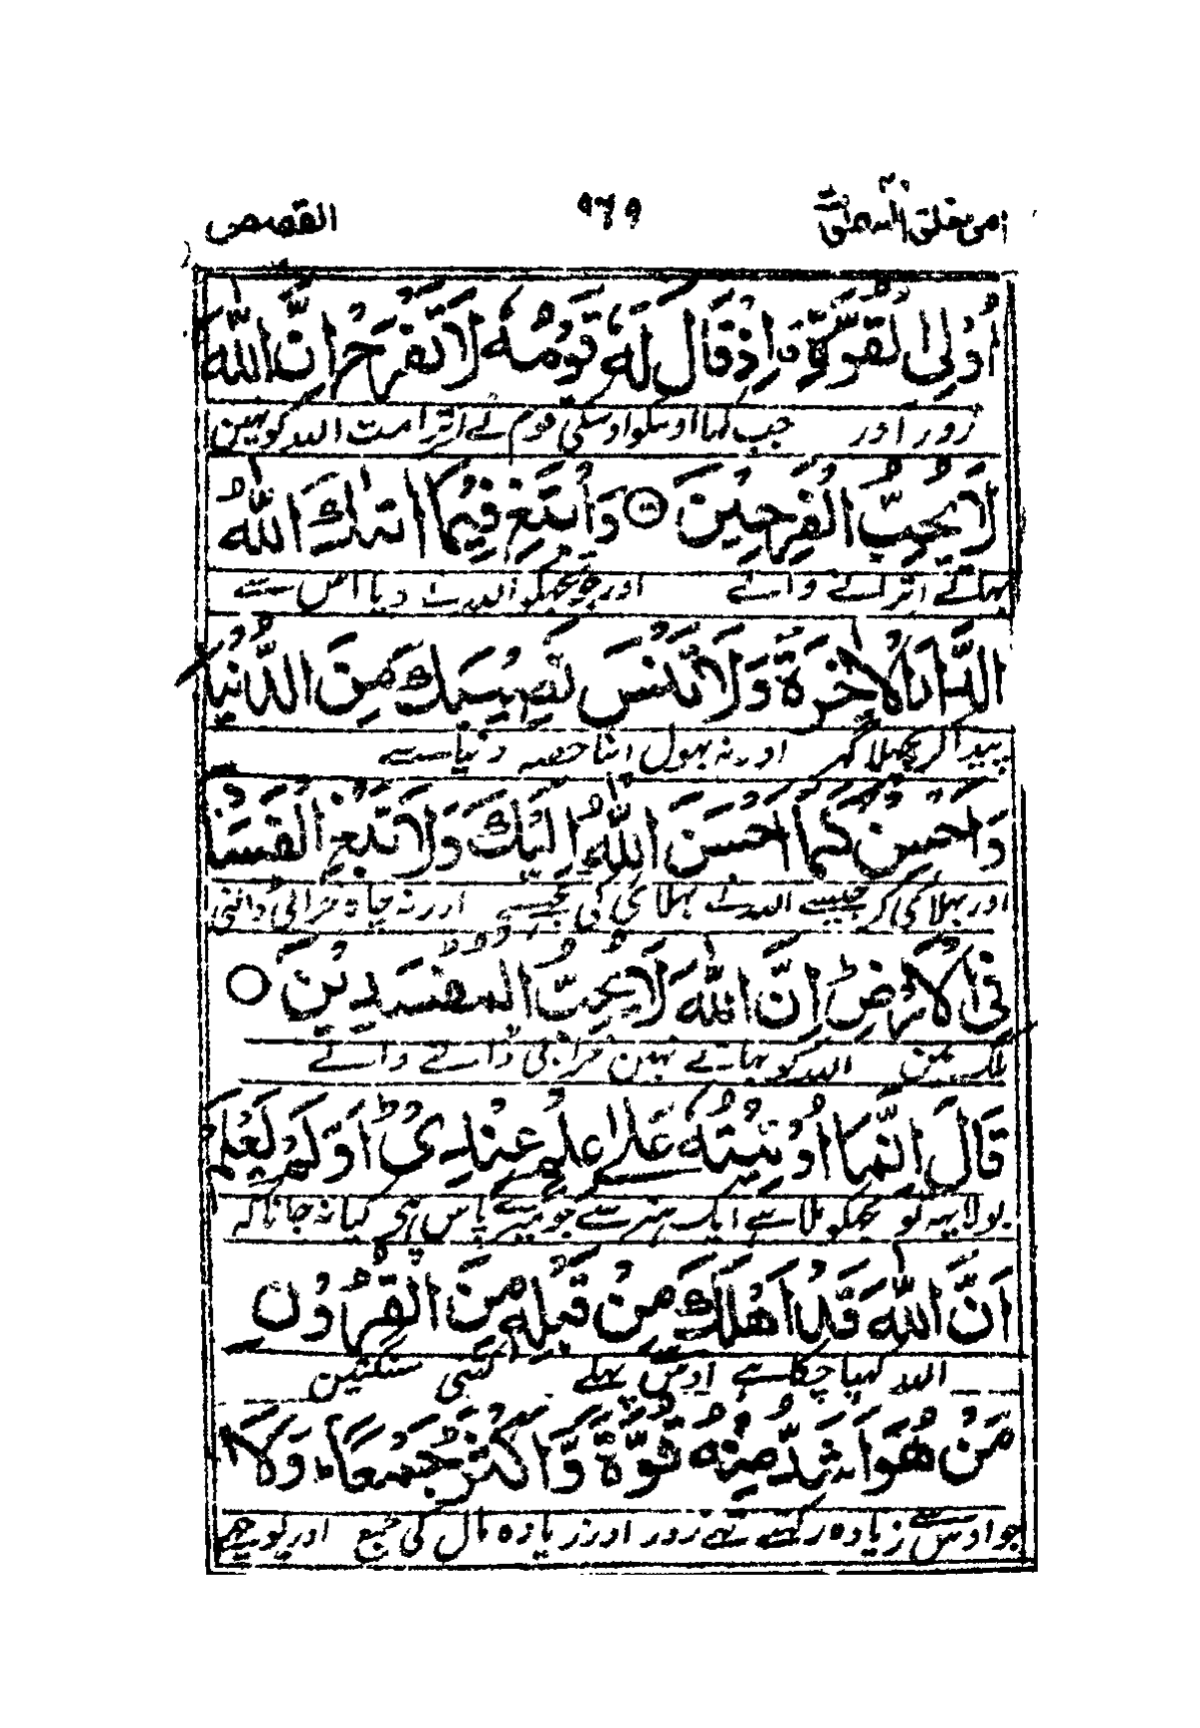 امن خلق القصص
اُولِی الْقُوَّةِ اِذْ قَالَ لَهٗ قَوْمُهٗ لَا تَفْرَحْ اِنَّ اللّٰهَ
زور آور جب کہا اوسکو اوسکی قوم نے اترا مت اللہ کو نہین
لَا یُحِبُّ الْفَرِحِیْنَ ○ وَابْتَغِ فِیْمَا اٰتٰىكَ اللّٰهُ
بہاتے اترانے والے اور جو تجھکو اللہ نے دیا اس سے
الدَّارَ الْاٰخِرَةَ وَلَا تَنْسَ نَصِیْبَكَ مِنَ الدُّنْیَا
پیدا کر پچھلا گھر اور نہ بہول اپنا حصہ دنیا سے
وَاَحْسِنْ كَمَا اَحْسَنَ اللّٰهُ اِلَیْكَ وَلَا تَبْغِ الْفَسَادَ
اور بہلائی کر جیسے اللہ نے بہلائی کی تجھسے اور نہ چاہ خرابی ڈالنی
فِی الْاَرْضِ ؕ اِنَّ اللّٰهَ لَا یُحِبُّ الْمُفْسِدِیْنَ ○
ملک مین اللہ کو بہاتے نہین خرابی ڈالنے والے
قَالَ اِنَّمَا اُوْتِیْتُهٗ عَلٰی عِلْمٍ عِنْدِیْ ؕ اَوَلَمْ یَعْلَمْ
بولا یہہ تو مجھکو ملا ہے ایک ہنر سے جو میرے پاس ہی کیا نہ جانا کہ
اَنَّ اللّٰهَ قَدْ اَهْلَكَ مِنْ قَبْلِهٖ مِنَ الْقُرُوْنِ
اللہ کہپا چکا ہے اوس پہلے کتنی سنگتین
مَنْ هُوَ اَشَدُّ مِنْهُ قُوَّةً وَّاَكْثَرُ جَمْعًا ؕ وَلَا
جو اوس سے زیادہ رکھتے تھے زور اور زیادہ مال کی جمع اور پوچھے